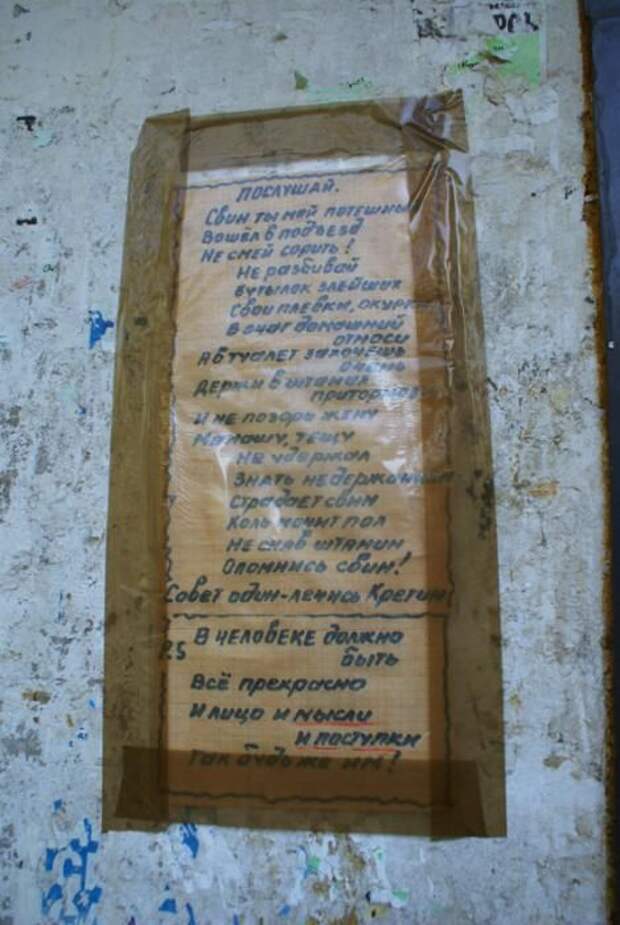 ПОСЛУШАЙ.
Свин ты мой потешный
Вошёл в подъезд
Не смей сорить!
Не разбивай
Бутылок злейших
Свои плевки, окурки
В очаг домашний
отнаси
А в туалет захочешь
очень
Держи в штанах
притормози
И не позорь жену
Мамашу, тёщу
Не удержал
Знать недержанием
Страдает свин
Коль мочит пол
Не сняв штанин
Опомнись свин!
Совет один-лечись Кретин
P.S В ЧЕЛОВЕКЕ должно
быть
Всё прекрасно
И лицо и мысли
и поступки
Так будь же им!